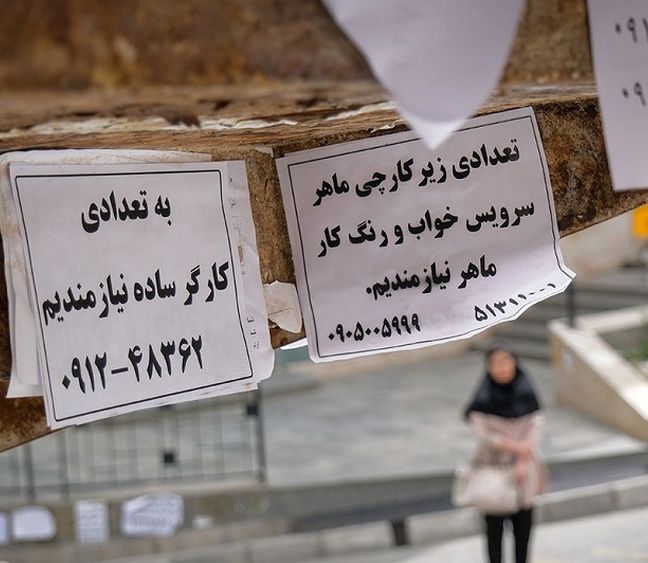 به تعدادی
کارگر ساده نیازمندیم
۰۹۱۲-۴۸۳۶۲
تعدادی زیر کارچی ماهر
سرویس خواب و رنگ کار
ماهر نیازمندیم.
۰۹۰۵۰۰۵۹۹۹
۵۱۳۱۱۰۰۱
۰۹۱
۰۹